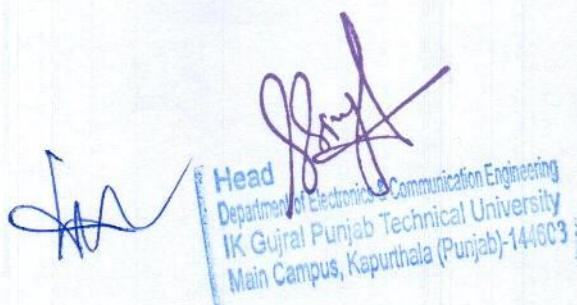 Head
Department of Electronics & Communication Engineering
IK Gujral Punjab Technical University
Main Campus, Kapurthala (Punjab)-144603